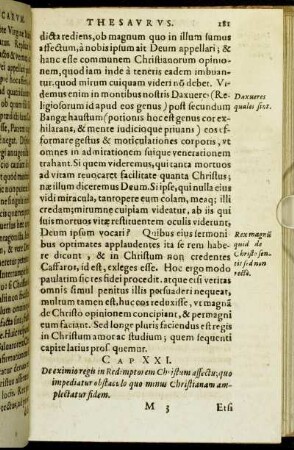 THESAVRVS. 181
dicta rediens, ob magnum quo in illum sumus
affectum, à nobis ipsum ait Deum appellari; &
hanc esse communem Christianorum opinio-
nem, quod iam inde à teneris eadem imbuan-
tur, quod mirum cuiquam videri nō debet. Vi-
demus enim in montibus nostris Daxueres (Re-
ligiosorum id apud eos genus) post secundum
Bangæ haustum (potionis hoc est genus cor ex-
hilarans, & mente iudicioque priuans) eos ef-
formare gestus & moticulationes corporis, vt
omnes in admirationem suique venerationem
trahant. Si quem videremus, qui tanta mortuos
ad vitam reuocaret facilitate quanta Christus;
næ illum diceremus Deum. Si ipse, qui nulla eius
vidi miracula, tantopere eum colam, meaq; illi
credam; mirumne cuipiam videatur, ab iis qui
suis mortuos vitæ restituentem oculis viderunt,
Deum ipsum vocari? Quibus eius sermoni
bus optimates applaudentes ita se rem habe-
re dicunt, & in Christum non credentes
Caffaros, id est, exleges esse. Hoc ergo modo
paulatim sic res fidei procedit. atque etsi veritas
omnis simul penitus illi persuaderi nequear,
multum tamen est, huc eos reduxisse, vt magnā
de Christo opinionem concipiant, & permagni
eum faciant. Sed longe pluris faciendus est regis
in Christum amor ac studium; quem sequenti
capite latius prosequemur.
Daxueres
quales sint.
Rex magnū
quid de
Christo sen-
tit sed non
CAP XXI.
De eximio regis in Redemptorem Christum affectu, quo
impediatur obstaculo quo minus Christianam am-
plectatur fidem.
M 3 Etsi